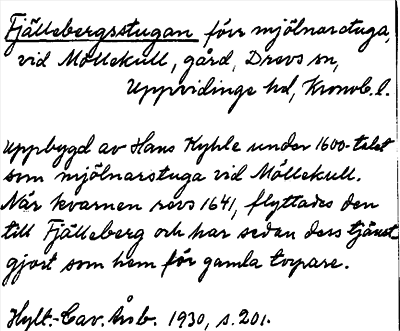 Fjällebergsstugan förr mjölnarstuga,
vid Möllekull, gård, Drevs sn,
Uppvidinge hd, Kronob. l.
Uppbygd av Hans Kyhle under 1600-talet
som mjölnarstuga vid Möllekull.
När kvarnen revs 1641, flyttades den
till Fjälleberg och har sedan dess tjänst
gjort som hem för gamla torpare.
Hylt.-Cav. Årsb. 1930, s. 201.